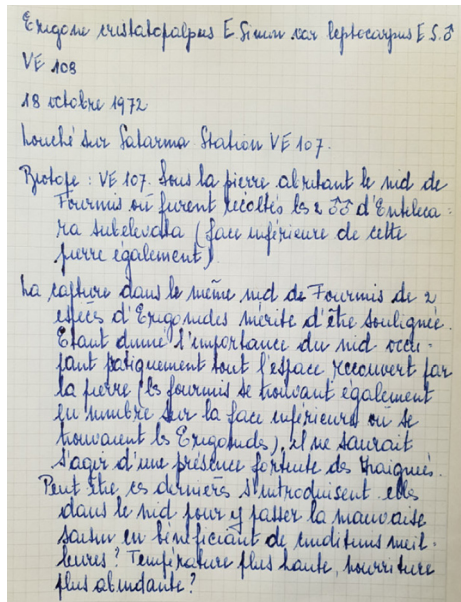 Erigone cristatopalpus E Simon var leptocarpus E.S. ♂
VE 108
18 octobre 1972
Louché sur Salarma Station VE 107.
Biotope : VE 107. Sous la pierre abritant le nid de
Fourmis où furent récoltés les 2 ♂♂ d'Enteleca-
ra subelevata (face inférieure de cette
pierre également)
La capture dans le même nid de Fourmis de 2
espèces d'Erigonides mérite d'être soulignée.
Etant donné l'importance du nid occu-
pant pratiquement tout l'espace recouvert par
la pierre (les fourmis se trouvant également
en nombre sur la face inférieure où se
trouvaient les Erigonides), il ne saurait
s'agir d'une présence fortuite des Araignées.
Peut être ces dernières s'introduisent-elles
dans le nid pour y passer la mauvaise
saison en bénéficiant de conditions meil-
leures ? Température plus haute, nourriture
plus abondante ?